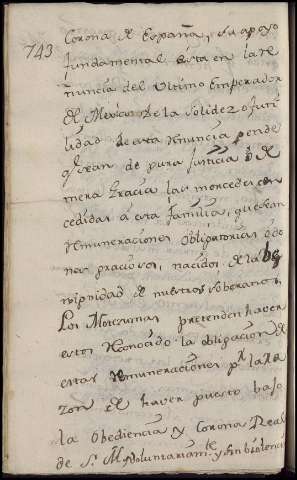 743
Corona de España, su apoyo
fundamental está en la re
nuncia del Ultimo Emperador
de Mexico. De la solidez o futi
lidad de esta renuncia pende
q. sean de pura Justicia o de
mera gracia las mercedes con
cedidas a esta familia, que sean
remuneraciones obligatorias o do
nes graciosos, nacidos de la be
nignidad de nuestros soberanos.
Los Motezumas pretenden haver
estos reconocido la obligacion de
estas remuneraciones pr. la ra
zon de haver puesto bajo
la obediencia y Corona Real
de S. M. voluntariamte. y sin violencia